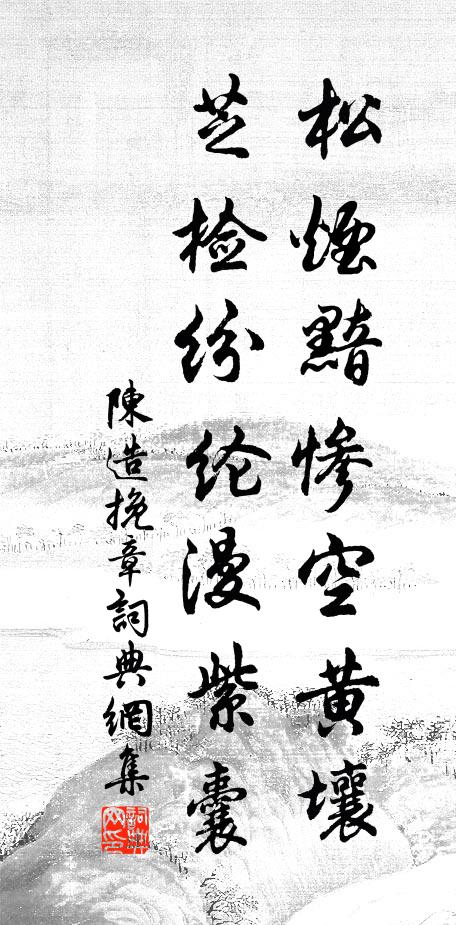 松煙黯慘空黃壤
芝检纷纶漫紫囊
陳造挽章詞典網集